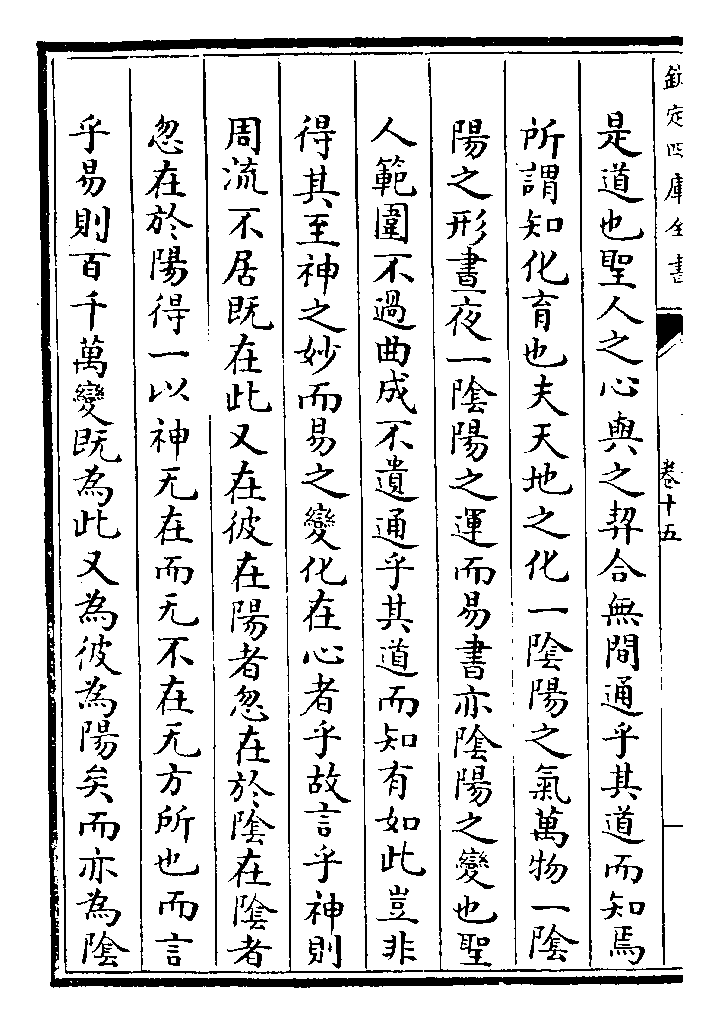 欽定四庫全書
卷十五
是道也聖人之心與之契合無間通乎其道而知焉
所謂知化育也夫天地之化一陰陽之氣萬物一陰
陽之形晝夜一陰陽之運而易書亦陰陽之變也聖
人範圍不過曲成不遺通乎其道而知有如此豈非
得其至神之妙而易之變化在心者乎故言乎神則
周流不居既在此又在彼在陽者忽在於陰在陰者
忽在於陽得一以神无在而无不在无方所也而言
乎易則百千萬變既為此又為彼為陽矣而亦為陰